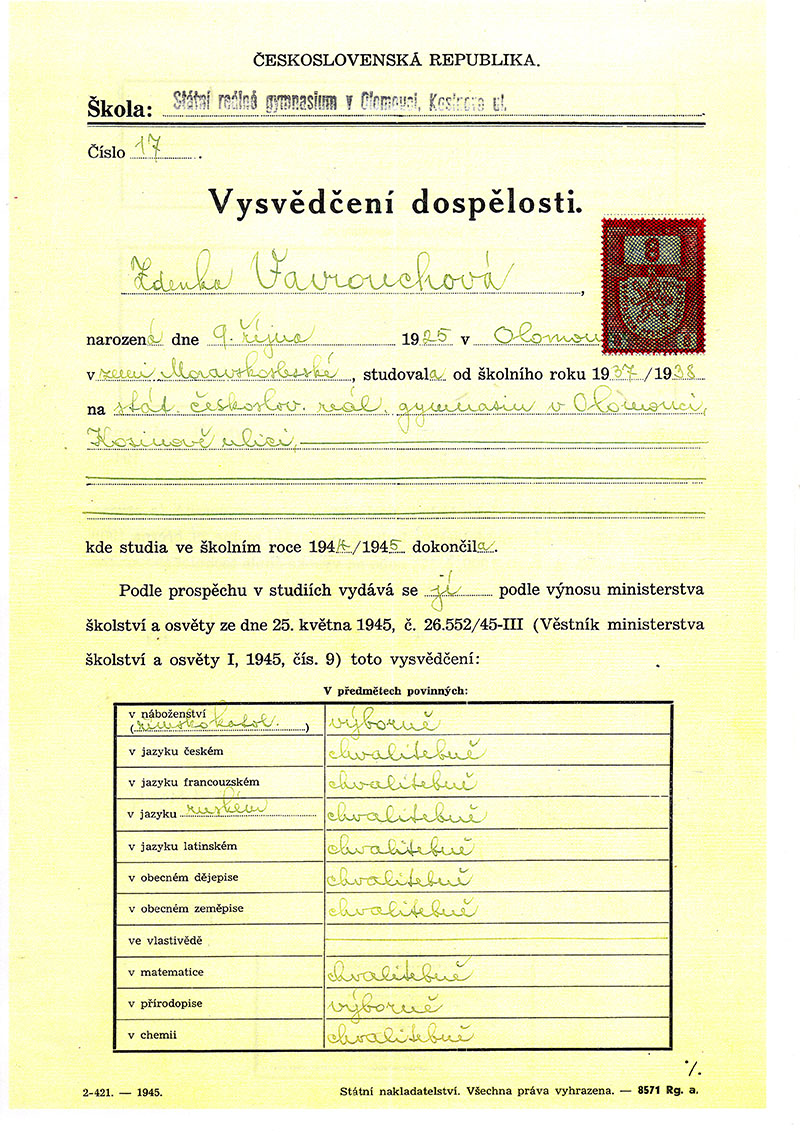 ČESKOSLOVENSKÁ REPUBLIKA.
Škola: Státní reálné gymnasium v Olomouci, Kosinova ul.
Číslo 17.
Vysvědčení dospělosti.
8
Zdenka Vavrouchová,
narozená dne 9. října 1925 v Olomouci
v zemi Moravskoslezské, studovala od školního roku 1937/1938
na stát. českoslov. reál. gymnasiu v Olomouci,
Kosinově ulici,
kde studia ve školním roce 1944/1945 dokončila.
Podle prospěchu v studiích vydává se jí podle výnosu ministerstva
školství a osvěty ze dne 25. května 1945, č. 26.552/45-III (Věstník ministerstva
školství a osvěty I, 1945, čís. 9) toto vysvědčení:
V předmětech povinných:
v náboženství
(římskokatol.) výborně
v jazyku českém chvalitebně
v jazyku francouzském chvalitebně
v jazyku ruském chvalitebně
v jazyku latinském chvalitebně
v obecném dějepise chvalitebně
v obecném zeměpise chvalitebně
ve vlastivědě
v matematice chvalitebně
v přírodopise výborně
v chemii chvalitebně
·/.
2-421. — 1945. Státní nakladatelství. Všechna práva vyhrazena. — 8571 Rg. a.